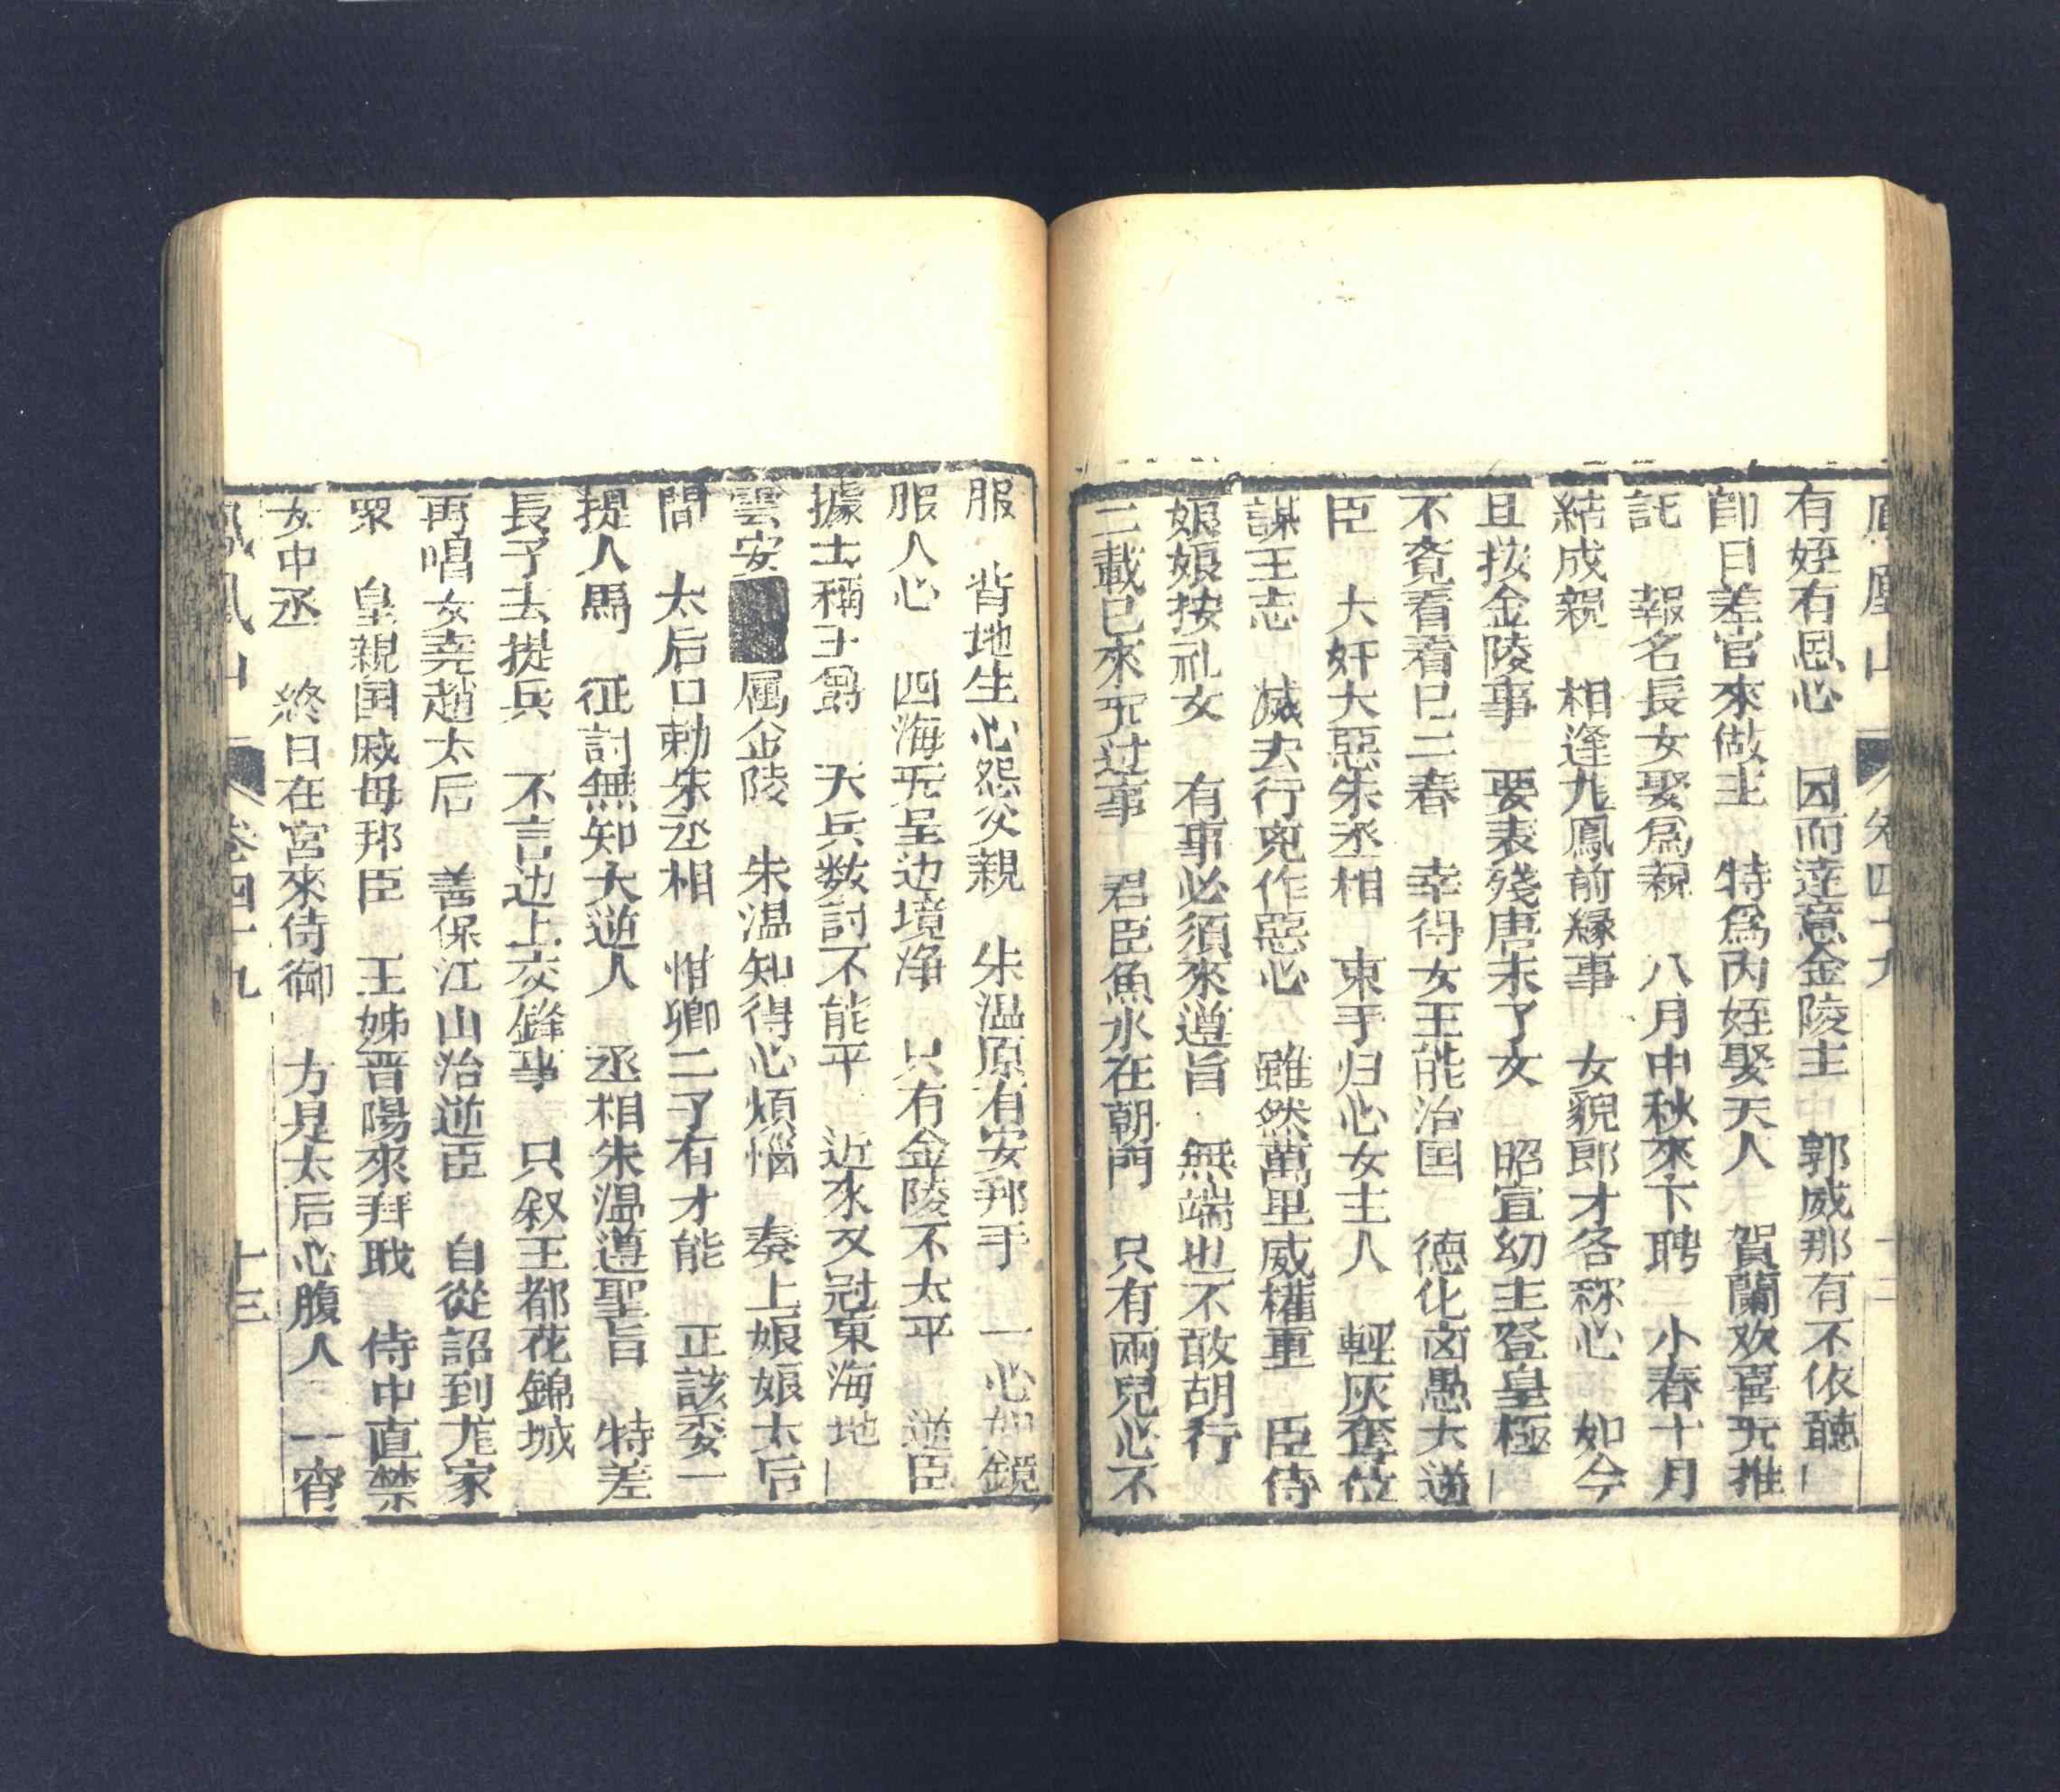 鳳凰山 卷四十九 十二
有姪有恩心 因而達意金陵主 郭威那有不依聽
即日差官來做主 特爲內姪娶天人 賀蘭欢喜旡推
託 報名長女娶爲親 八月中秋來下聘 小春十月
結成親 相逢九鳳前緣事 女貌郎才各称心 如今
且按金陵事 要表殘唐未了文 昭宣幼主登皇極
不覔看看已二春 幸得女王能治国 德化囪愚大逆
臣 大奸大惡朱丞相 東手归心女主人 輕灰奪位
謀王志 滅去行兇作惡心 雖然萬里威權重 臣侍
娘娘按礼女 有事必須來遵旨 無端也不敢胡行
二載已來旡过事 君臣魚水在朝門 只有兩兒心不
服 背地生心怨父親 朱溫原有安邦手 一心如鏡
服人心 四海旡呈边境净 只有金陵不太平 逆臣
據土稱王爵 天兵数討不能平 近來又冦東海地
雲安 属金陵 朱温知得心煩惱 奏上娘娘太后
間 太后口勅朱丞相 惟卿二子有才能 正該委一
提人馬 征討無知大逆人 丞相朱溫遵聖旨 特差
長子去提兵 不言边上交鋒事 只叙王都花錦城
再唱女堯趙太后 善保江山治逆臣 自從詔到尨家
眾 皇親国戚母邦臣 王姊晋陽來拜戢 侍中直禁
女中丞 終日在宮來侍御 方是太后心腹人 一宵
鳳凰山 卷四十九 十三